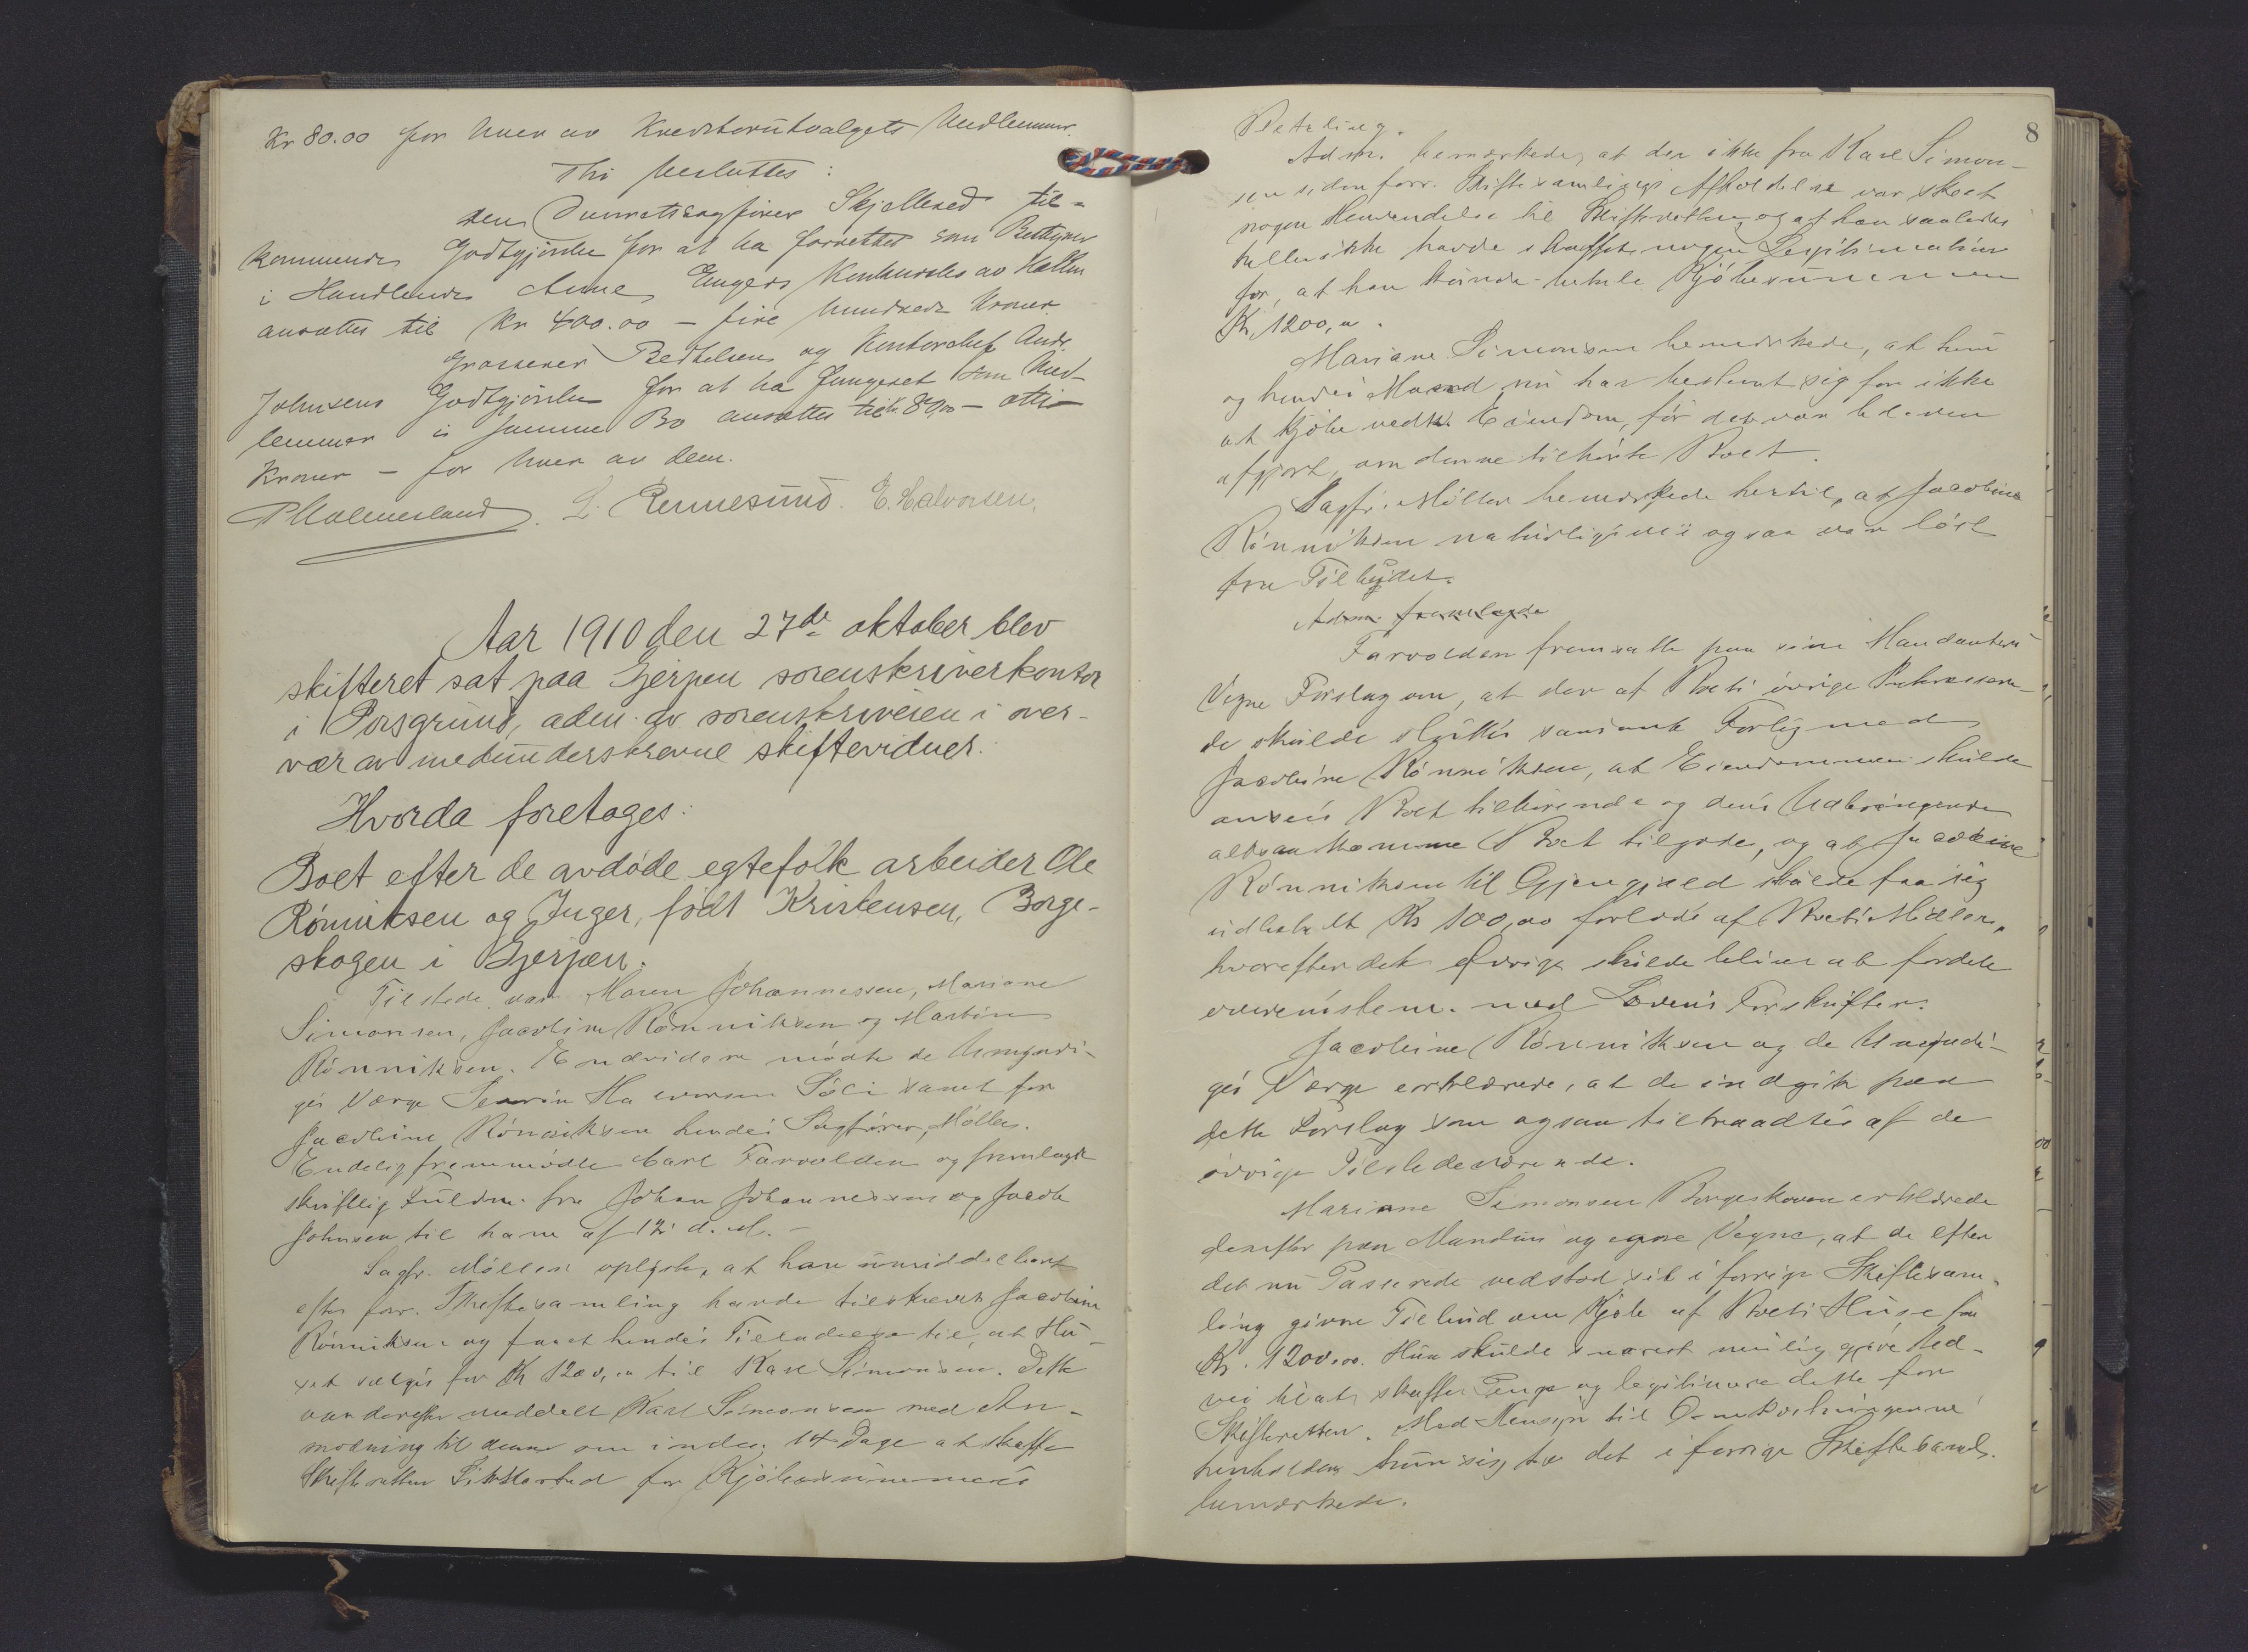 Kr 80.00 for hver av Kreditorutvalgets Medlemmer.
Thi besluttes:
den Overretssagfører Skjelbred til-
kommende Godtgjørelse for at ha forrettet som Bestyrer
i Handlende Anne Engers Konkursbo av Retten
ansættes til Kr 400.00 – fire hundrede Kroner.
Grosserer Berthelsen og Kontorchef Andr.
Johnsens Godtgjørelse for at ha fungeret som Med-
lemmer i samme Bo ansættes til kr 80,00 – otti
Kroner – for hver av dem.
L. Rennesund. E. Halvorsen.
Aar 1910 den 27de oktober blev
skifteret sat paa Gjerpen sorenskriverkontor
i Porsgrund, adm. av sorenskriveren i over-
vær av medunderskrevne skiftevidner.
Hvorda foretoges:
Boet efter de avdøde egtefolk arbeider Ole
Rønniksen og Inger, født Kristensen, Borge-
skogen i Gjerpen.
Tilstede var Maren Johannessen, Mariane
Simonsen, Jacobine Rønniksen og Martin
Rønniksen. Endvidere mødte de Umyndi-
ges Værge Halvorsen Søli samt for
Jacobine Rønniksen hendes Sagfører, Møller.
Endelig fremmødte Carl Farvolden og fremlagde
skriftlig Fuldm. fra Johan Johannessen og Jacob
Johnsen til ham af 12 d. M. –
Sagfr. Møller oplyste, at han umiddelbart
efter forr. Skiftesamling havde tilskrevet Jacobine
Rønniksen og faaet hendes Tilladelse til, at Hu-
set sælges for Kr 1200,00 til Karl Simonsen. Dette
var derefter meddelt Karl Simonsen med An-
modning til denne om inden 14 Dage at skaffe
Skifteretten Sikkerhed for Kjøbesummens
8
Betaling.
Adm. bemærkede, at der ikke fra Karl Simon-
sen siden forr. Skiftesamlings Afholdelse var skeet
nogen Henvendelse til Skifteretten, og at han saaledes
heller ikke havde skaffet nogen Legitimation
for, at han kunde betale Kjøbesummen
Kr. 1200,00.
Mariane Simonsen bemærkede, at hun
og hendes Mand nu har bestemt sig for ikke
at kjøbe vedk. Eiendom, før det var bleven
afgjort, om denne tilhørte Boet.
Sagfr. Møller bemærkede hertil, at Jacobine
Rønniksen naturligvis ogsaa var løst
fra Tilbudet.
Adm. fremlagde
Farvolden fremsatte paa sine Mandanters
Vegne Forslag om, at der af Boets øvrige Interessere-
de skulde sluttes saadant Forlig med
Jacobine Rønniksen, at Eiendommen skulde
ansees Boet tilhørende og dens Udbringende
altsaa komme Boet tilgode, og at Jacobine
Rønniksen til Gjengjæld skulde faa sig
udbetalt Kr 100,00 forlods af Boets Midler,
hvorefter det Øvrige skulde blive at fordele
overensstem. med Lovens Forskrifter.
Jacobine Rønniksen og de Umyndi-
ges Værge erklærede, at de indgik paa
dette Forslag som ogsaa tiltraadtes af de
øvrige Tilstedeværende.
Mariane Simonsen Borgeskoven erklærede
derefter paa Mandens og egne Vegne, at de efter
det nu Passerede vedstod sit i forrige Skiftesam-
ling givne Tilbud om Kjøb af Boets Huse for
Kr. 1200.00. Hun skulde snarest mulig gjøre Ud-
vei til at skaffe Penge og legitimere dette for
Skifteretten. Med Hensyn til Omkostningerne
henholder hun sig til det i forrige Skiftesaml.
bemærkede.